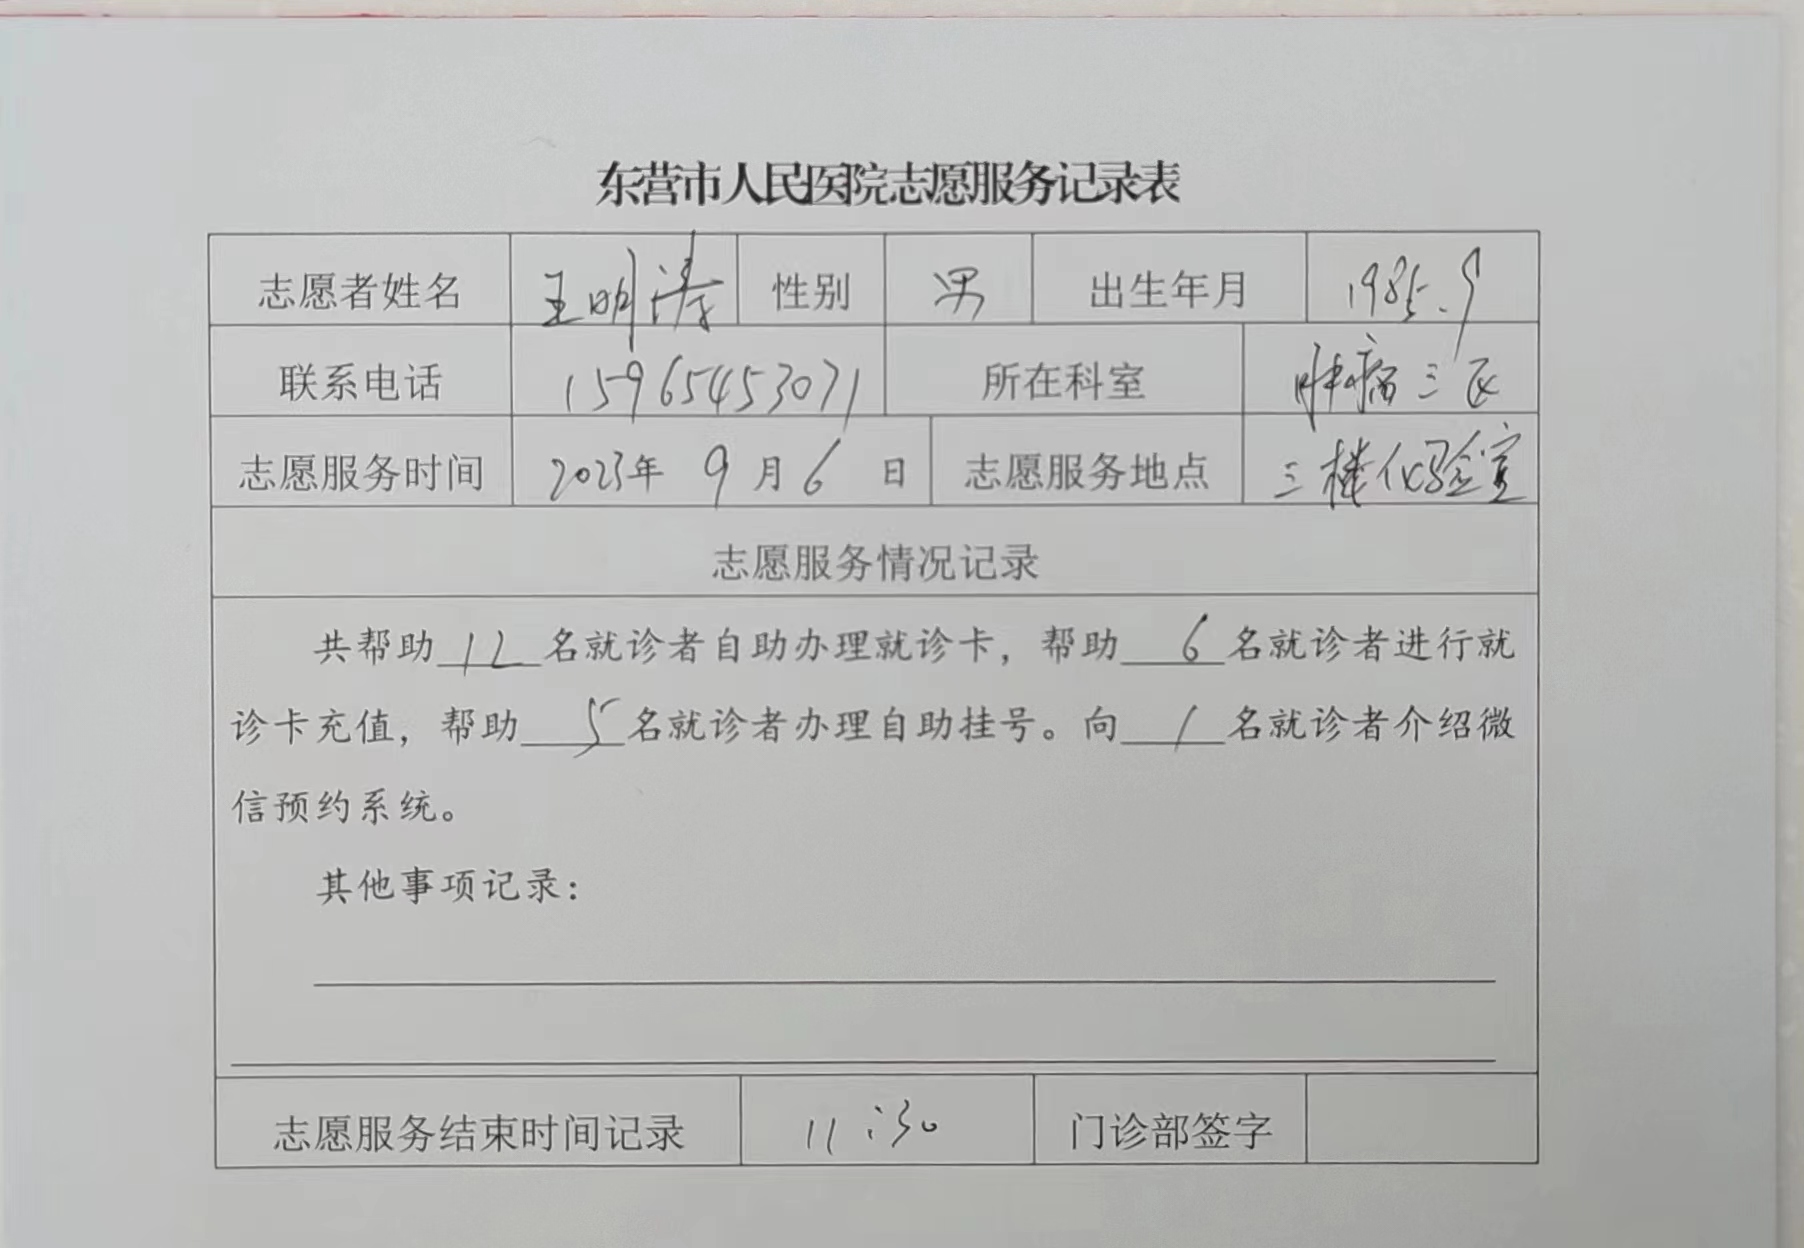 东营市人民医院志愿服务记录表
志愿者姓名 王明涛 性别 男 出生年月 1985.9
联系电话 15965453071 所在科室 肿瘤三区
志愿服务时间 2023年 9 月 6 日 志愿服务地点 三楼化验室
志愿服务情况记录
共帮助 12 名就诊者自助办理就诊卡，帮助 6 名就诊者进行就
诊卡充值，帮助 5 名就诊者办理自助挂号。向 1 名就诊者介绍微
信预约系统。
其他事项记录：
志愿服务结束时间记录 11:30 门诊部签字